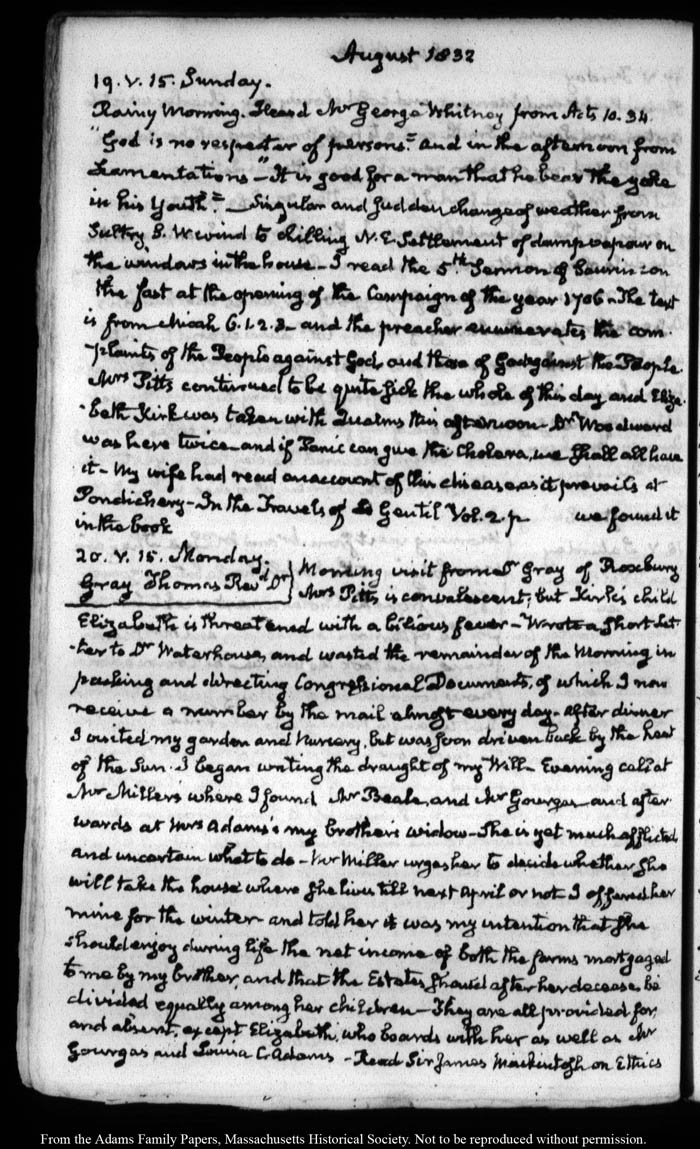 August 1832
19. V. 15. Sunday.
Rainy Morning. Heard Mr George Whitney from Acts 10. 34.
"God is no respecter of persons." and in the afternoon from
Lamentations "—It is good for a man that he bear the yoke
in his Youth."— Singular and sudden change of weather from
Sultry S. W. wind to chilling N. E. Settlement of damp vapour on
the windows in the house— I read the 5th Sermon of Saurin: on
the fast at the opening of the Campaign of the year 1706—The text
is from Micah 6. 1. 2. 3— and the preacher enumerates the com-
-plaints of the People against God, and those of God against the People.
Mrs Pitts continued to be quite sick the whole of this day and Eliza-
-beth Kirk was taken with Qualms this afternoon— Dr Woodward
was here twice—and if Panic can give the Cholera, we shall all have
it— My wife had read an account of this disease, as it prevails at
Pondichery— In the Travels of Le Gentil Vol. 2. p we found it
in the book
20. V. 15. Monday.
Gray Thomas Revd Dr } Morning visit from Dr Gray of Roxbury
Mrs Pitts is convalescent; but Kirk's child
Elizabeth is threatened with a bilious fever— Wrote a short Let-
-ter to Dr Waterhouse, and wasted the remainder of the Morning in
packing and directing Congressional Documents, of which I now
receive a number by the mail almost every day— After dinner
I visited my garden and Nursery, but was soon driven back by the heat
of the Sun. I began writing the draught of my Will— Evening call at
Mr Miller's where I found Mr Beale, and Mr Gourgas—and after-
wards at Mrs Adams's my brother's widow—She is yet much afflicted
and uncertain what to do— Mr Miller urges her to decide whether she
will take the house where she lives till next April or not. I offered her
mine for the winter— and told her it was my intention that she
should enjoy during life the net income of both the farms mortgaged
to me by my brother, and that the Estates should after her decease be
divided equally among her children— They are all provided for,
and absent, except Elizabeth, who boards with her as well as Mr
Gourgas and Louisa C. Adams —Read Sir James Mackintosh on Ethics
From the Adams Family Papers, Massachusetts Historical Society. Not to be reproduced without permission.